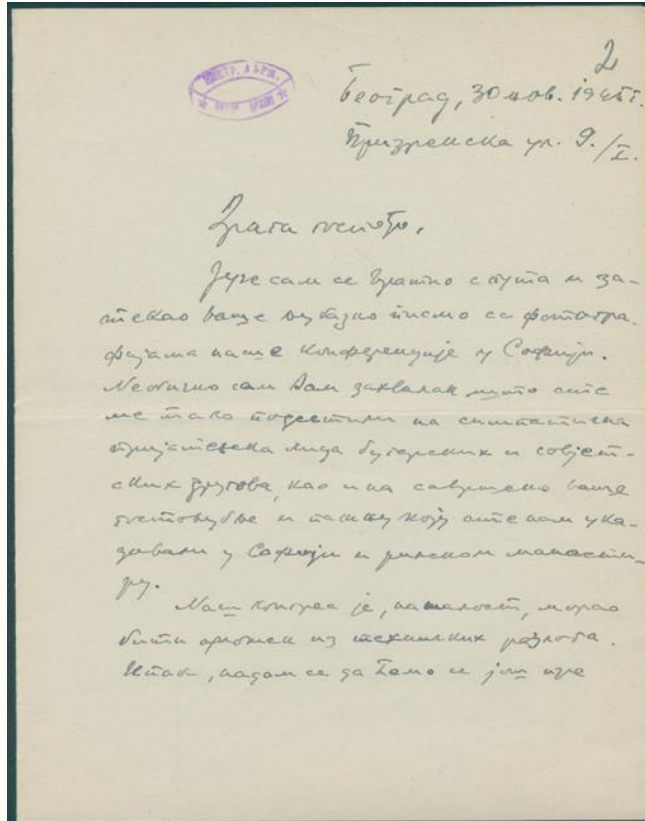 2
Београд, 30 нов. 1945 г.
Призренска ул. 9./I.
Драги госпођо,
Јуче сам се вратио с пута и за-
текао ваше љубазно писмо са фотогра-
фијама наше конференције у Софији.
Необично сам Вам захвалан што сте
ме тако подсетили на симпатична
пријатељска лица бугарских и совјет-
ских другова, као и на савршено ваше
гостољубље и пажњу коју сте нам ука-
зивали у Софији и рилском манасти-
ру.
Наш конгрес је, нажалост, морао
бити одложен из техничких разлога.
Ипак, надам се да ћемо се још пре